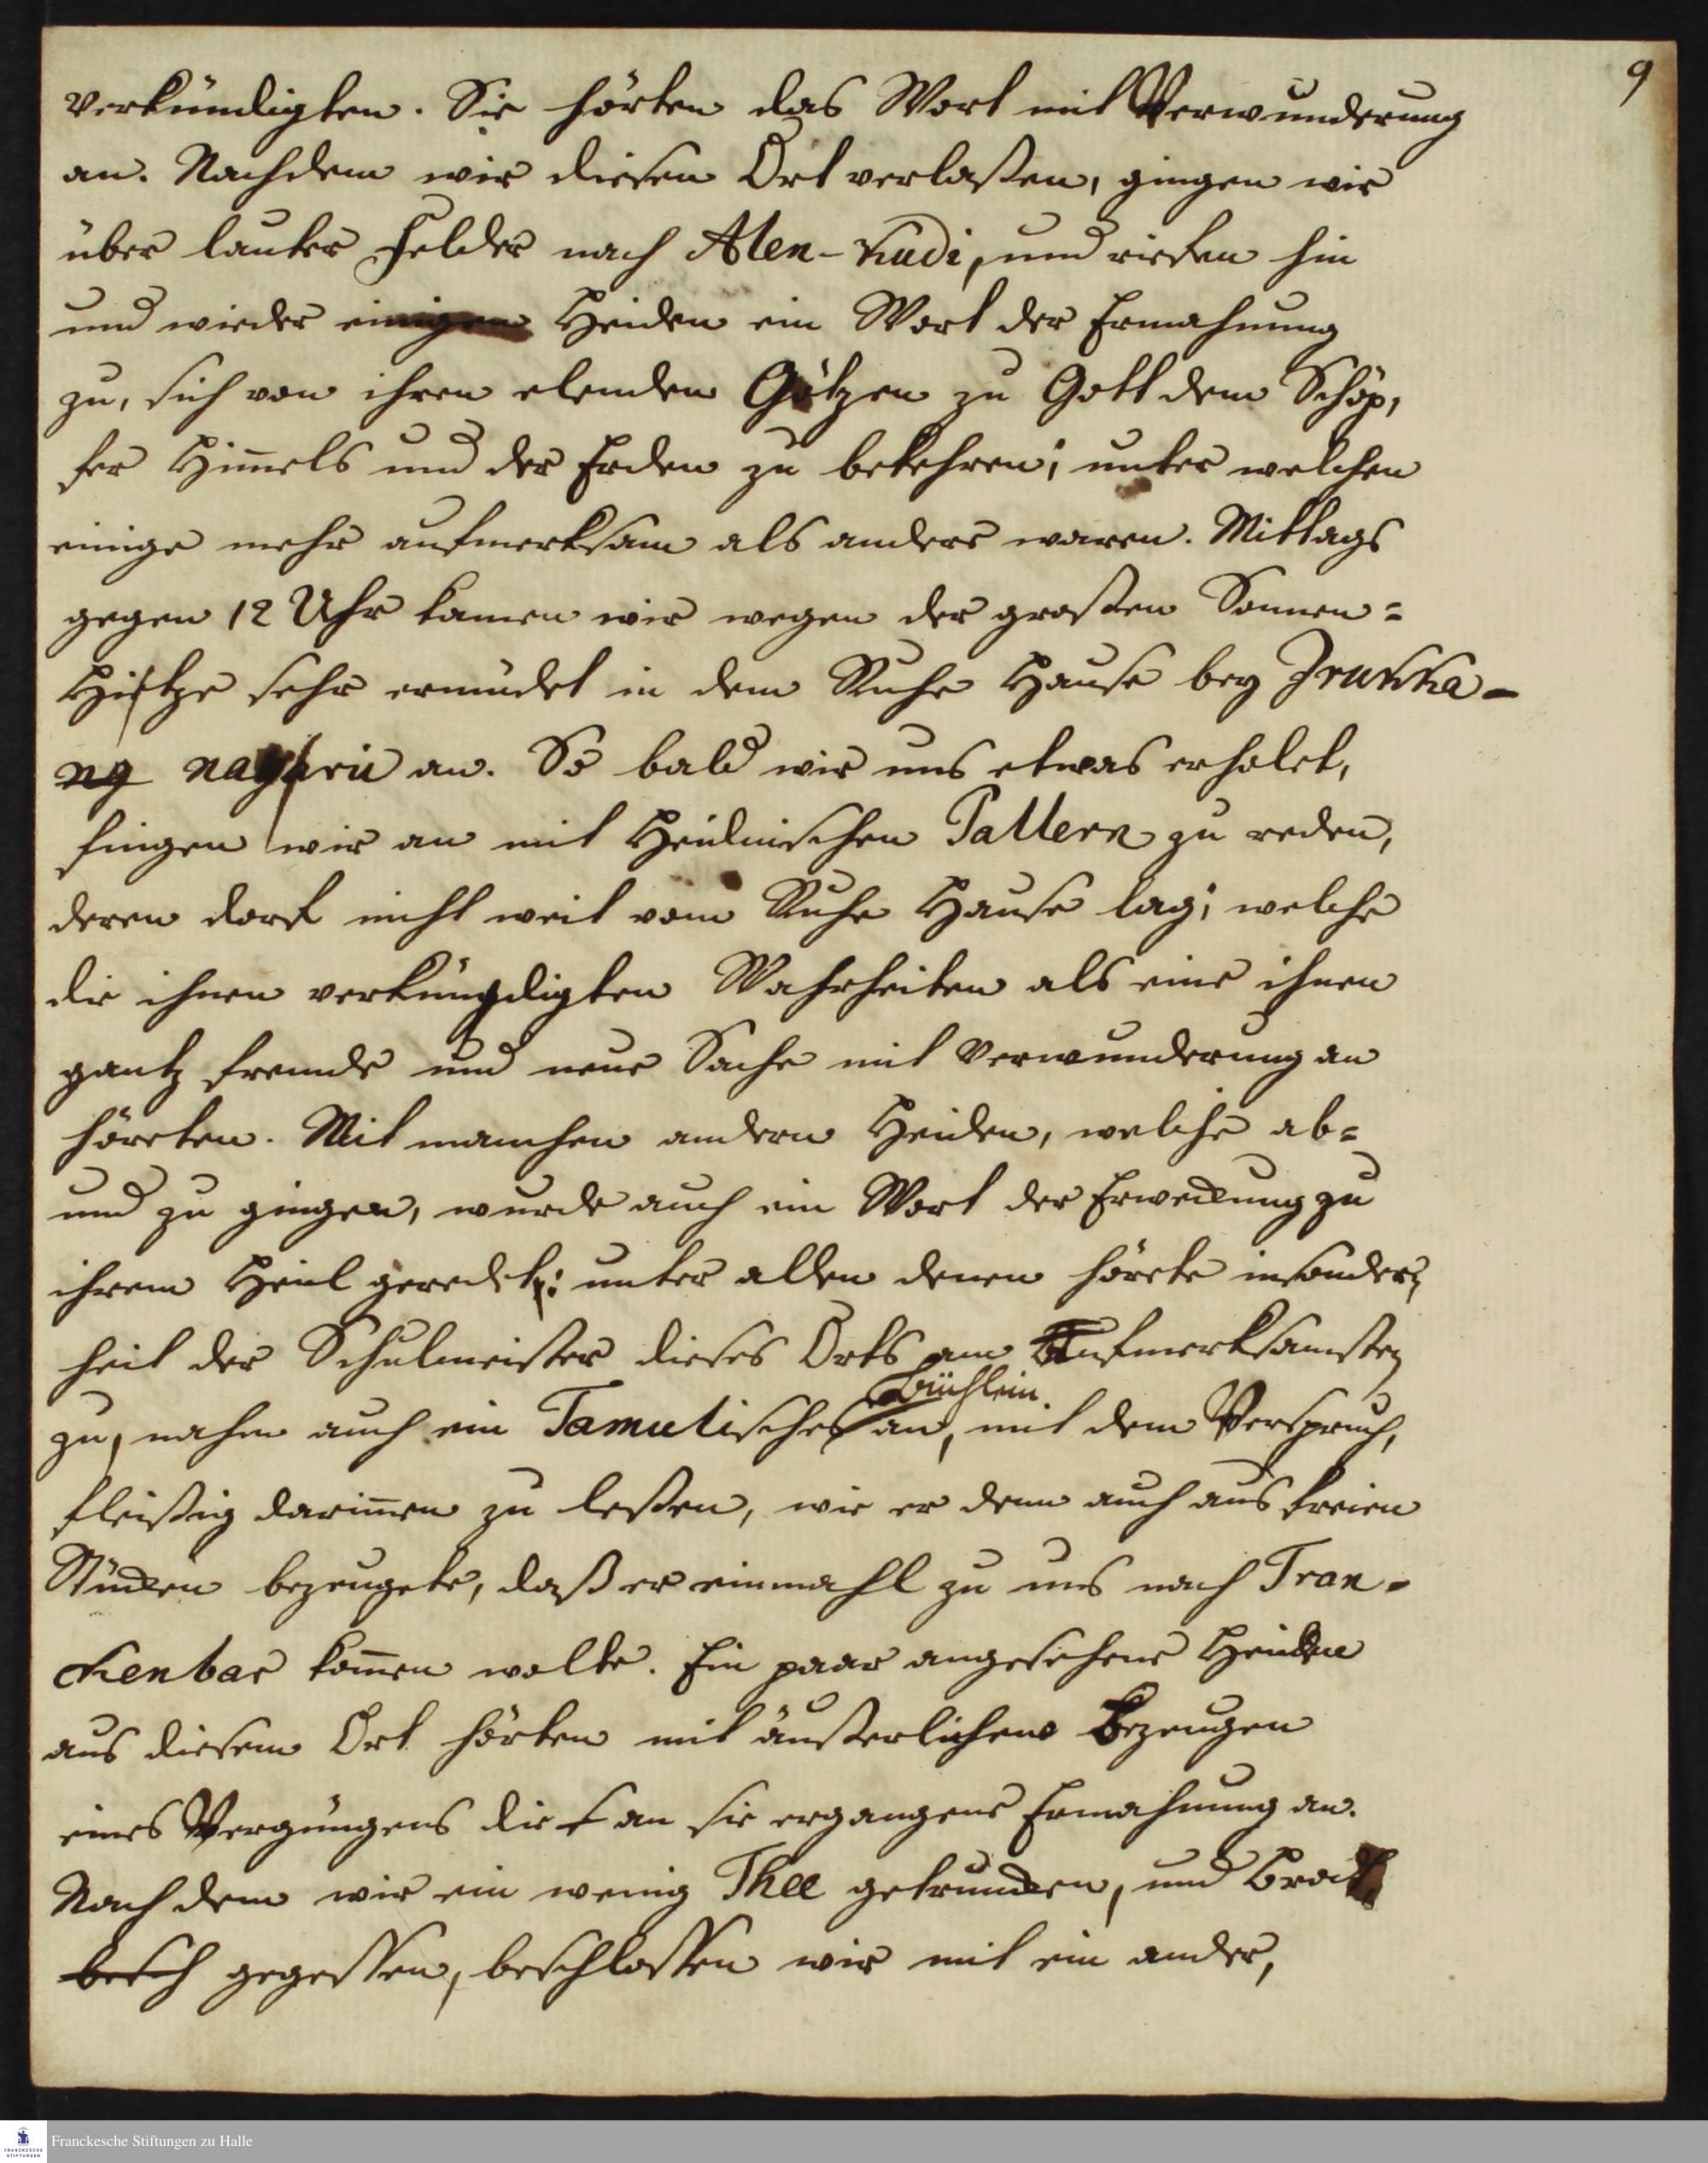 9
verkündigten. Sie hörten das Wort mit Verwunderung
an. Nachdem wir diesen Ort verlaßen, gingen wir
über lauter Felder nach Alen-Kudi, und riefen hin
und wieder einigen Heiden ein Wort der Ermahnung
zu, sich von ihren elenden Götzen zu Gott dem Schöp,
fer Him̄els und der Erden zu bekehren; unter welchen
einige mehr aufmerksam als andere waren. Mittags
gegen 12 Uhr kamen wir wegen der großen Sonnen=
Hitze sehr ermüdet in dem Ruhe Hause bey Irukka-
ng naguru an. So bald wir uns etwas erholet,
fingen wir an mit Heidnischen Pallern zu reden,
deren dorf nicht weit vom Ruhe Hause lag; welche
die ihnen verkündigten Wahrheiten als eine ihnen
gantz fremde und neue Sache mit Verwunderung an
höreten. Mit manchen andern Heiden, welche ab=
und zu gingen, wurde auch ein Wort der Erweckung zu
ihrem Heil geredet: unter allen denen hörete insonder,
heit der Schulmeister dieses Orts am Aufmerksamsten
zu, nahm auch ein Tamulisches Büchlein an, mit dem Verspruch,
fleißig darin̄en zu leßen, wie er denn auch aus freien
Stücken bezeugete, daß er einmahl zu uns nach Tran-
ckenbar kom̄en wolte. Ein paar angesehene Heiden
aus diesem Ort hörten mit äußerlichem Bezeugen
eines Vergnügens die an sie ergangene Ermahnung an.
Nach dem wir ein wenig Thee getruncken, und Brodt
besch gegessen, beschlossen wir mit ein ander,
Franckesche Stiftungen zu Halle